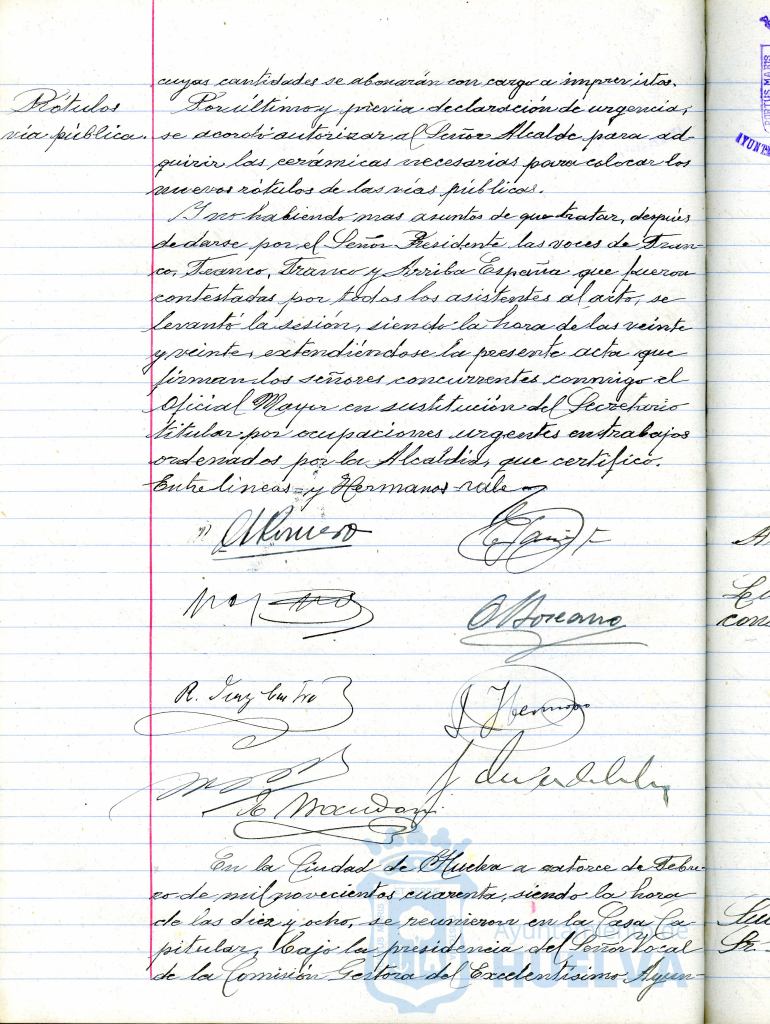 cuyas cantidades se abonarán con cargo a imprevistos.
Rótulos
vía pública.
Por último y previa declaración de urgencia,
se acordó autorizar al Señor Alcalde para ad-
quirir las cerámicas necesarias para colocar los
nuevos rótulos de las vías públicas.
Y no habiendo mas asuntos de que tratar, después
de darse por el Señor Presidente las voces de Fran-
co, Franco, Franco y Arriba España que fueron
contestadas por todos los asistentes al acto, se
levantó la sesión, siendo la hora de las veinte
y veinte, extendiéndose la presente acta que
firman los señores concurrentes conmigo el
Oficial Mayor en sustitución del Secretario
titular por ocupaciones urgentes en trabajos
ordenados por la Alcaldía, que certifico.
Entre lineas = y Hermanos = vale
A Romero
R. Diaz
J Hermoso
En la Ciudad de Huelva a catorce de Febre-
ro de mil novecientos cuarenta, siendo la hora
de las diez y ocho, se reunieron en la Casa Ca-
pitular, bajo la presidencia del Señor Vocal
de la Comisión Gestora del Excelentísimo Ayun-
Ayuntamiento de
HUELVA
PORTUS MARIS
AYUNT